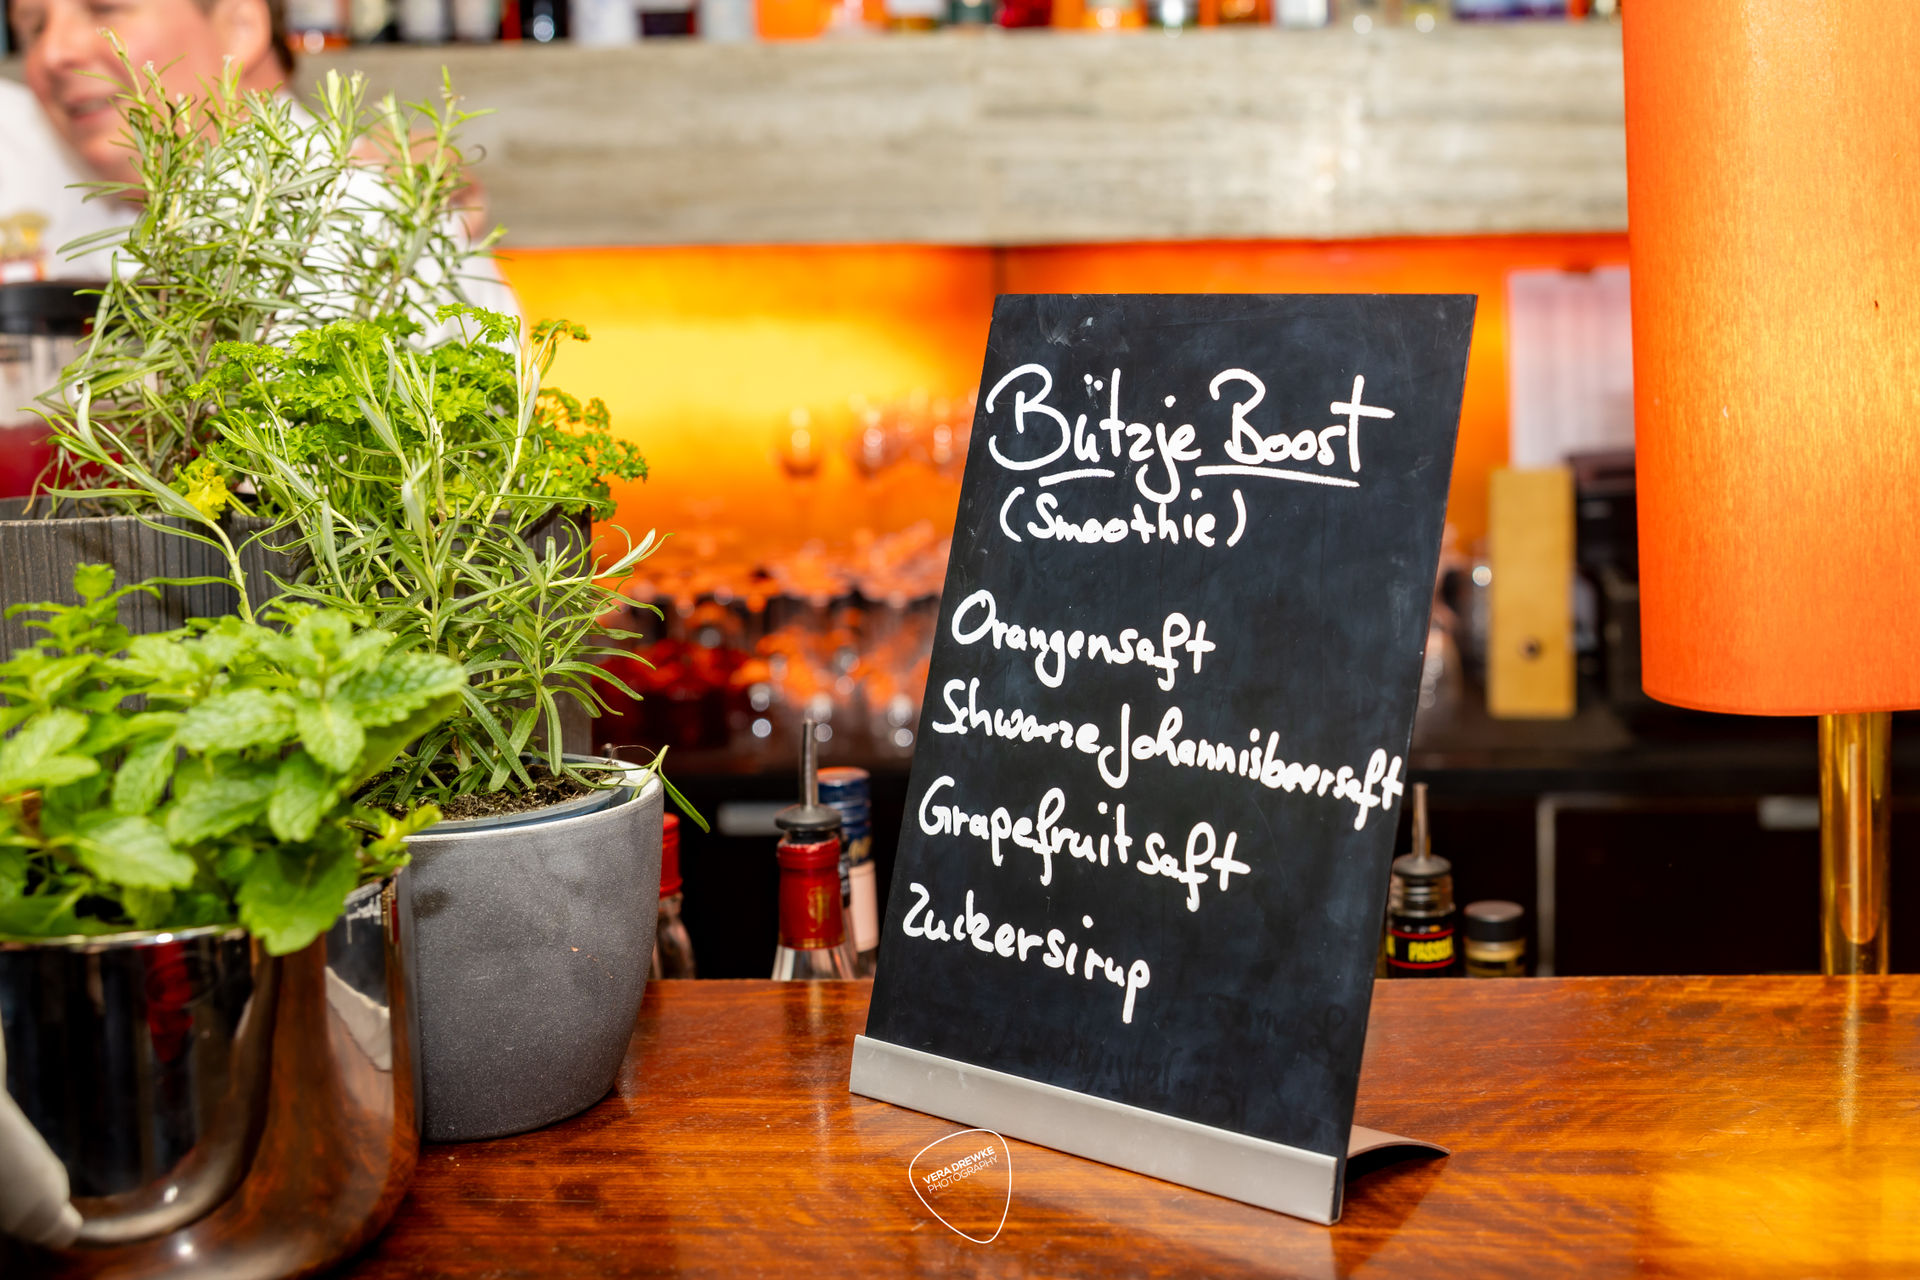 Bützje Boost
(Smoothie)
Orangensaft
Schwarze Johannisbeersaft
Grapefruitsaft
Zuckersirup
VERA DREWKE
PHOTOGRAPHY